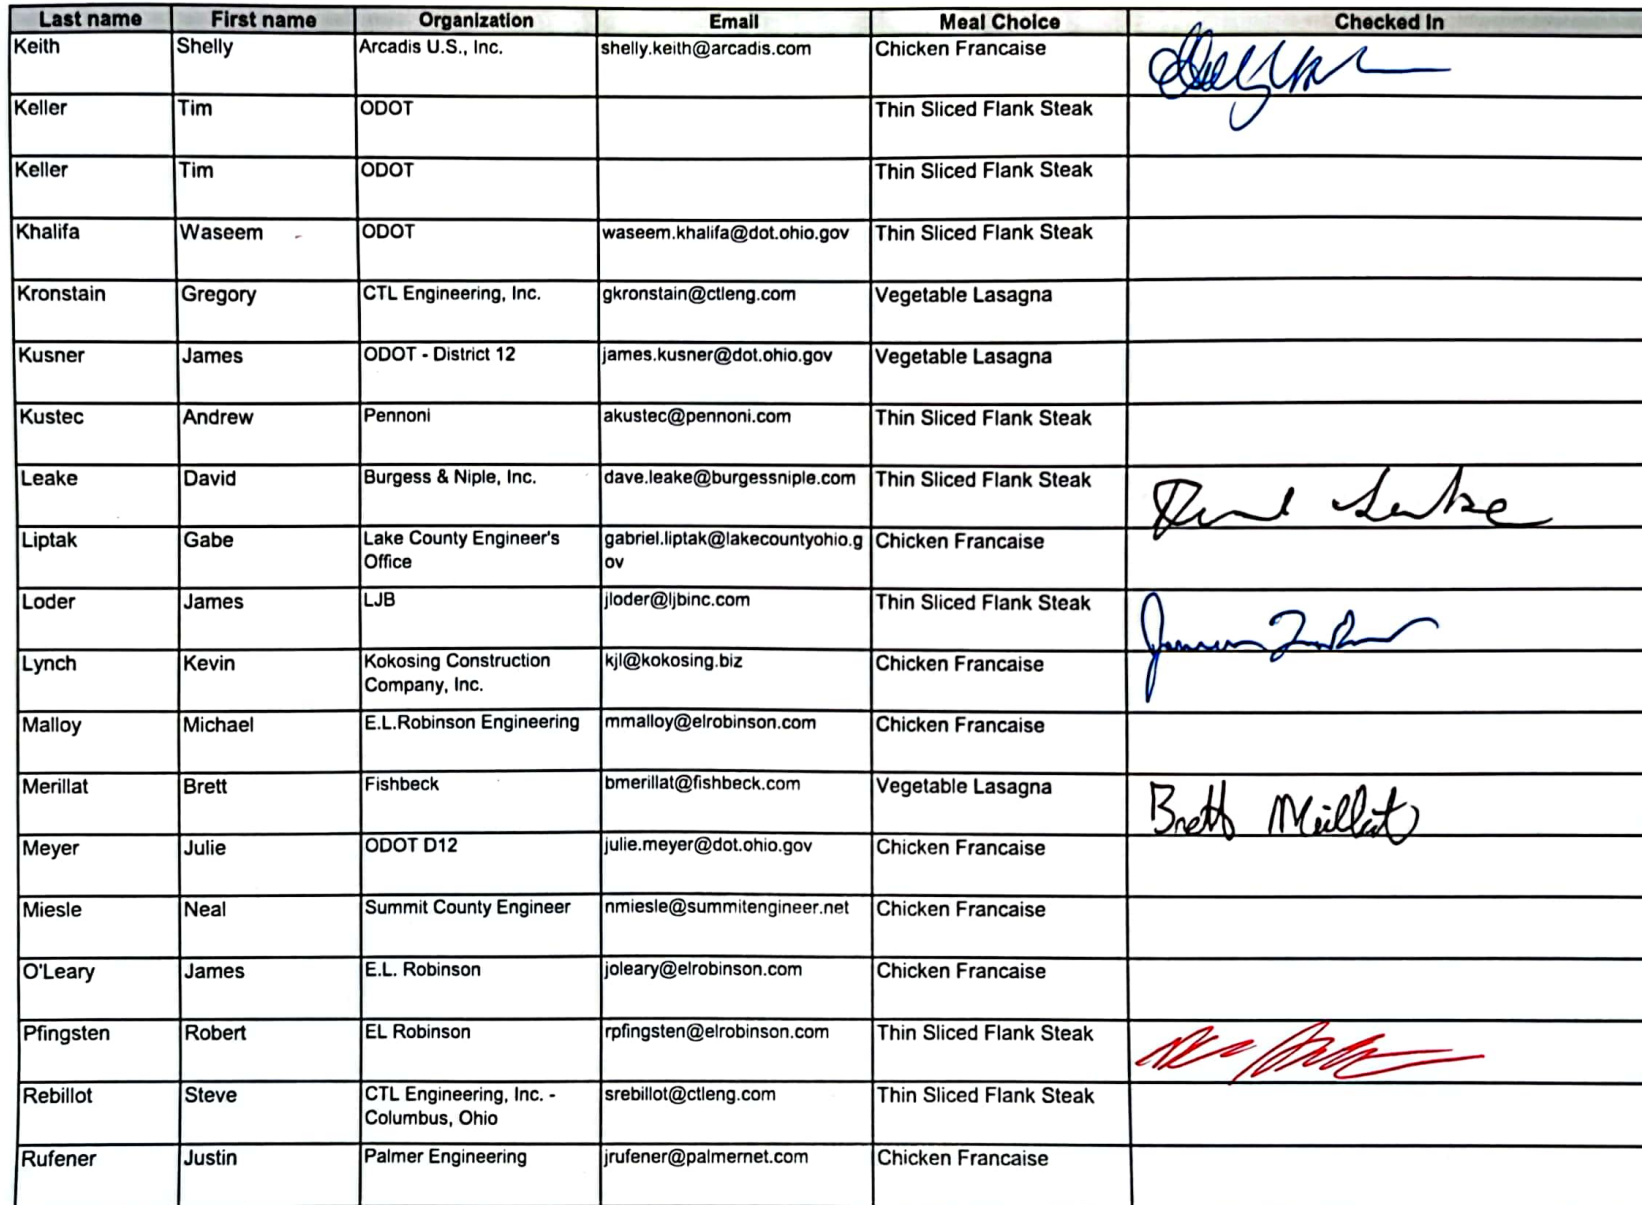 Last name First name Organization Email Meal Choice Checked In
Keith Shelly Arcadis U.S., Inc. shelly.keith@arcadis.com Chicken Francaise
Keller Tim ODOT Thin Sliced Flank Steak
Keller Tim ODOT Thin Sliced Flank Steak
Khalifa Waseem ODOT waseem.khalifa@dot.ohio.gov Thin Sliced Flank Steak
Kronstain Gregory CTL Engineering, Inc. gkronstain@ctleng.com Vegetable Lasagna
Kusner James ODOT - District 12 james.kusner@dot.ohio.gov Vegetable Lasagna
Kustec Andrew Pennoni akustec@pennoni.com Thin Sliced Flank Steak
Leake David Burgess & Niple, Inc. dave.leake@burgessniple.com Thin Sliced Flank Steak
Liptak Gabe Lake County Engineer's gabriel.liptak@lakecountyohio.g Chicken Francaise
Office ov
Loder James LJB jloder@ljbinc.com Thin Sliced Flank Steak
Lynch Kevin Kokosing Construction kjl@kokosing.biz Chicken Francaise
Company, Inc.
Malloy Michael E.L.Robinson Engineering mmalloy@elrobinson.com Chicken Francaise
Merillat Brett Fishbeck bmerillat@fishbeck.com Vegetable Lasagna Brett Merillat
Meyer Julie ODOT D12 julie.meyer@dot.ohio.gov Chicken Francaise
Miesle Neal Summit County Engineer nmiesle@summitengineer.net Chicken Francaise
O'Leary James E.L. Robinson joleary@elrobinson.com Chicken Francaise
Pfingsten Robert EL Robinson rpfingsten@elrobinson.com Thin Sliced Flank Steak
Rebillot Steve CTL Engineering, Inc. - srebillot@ctleng.com Thin Sliced Flank Steak
Columbus, Ohio
Rufener Justin Palmer Engineering jrufener@palmernet.com Chicken Francaise